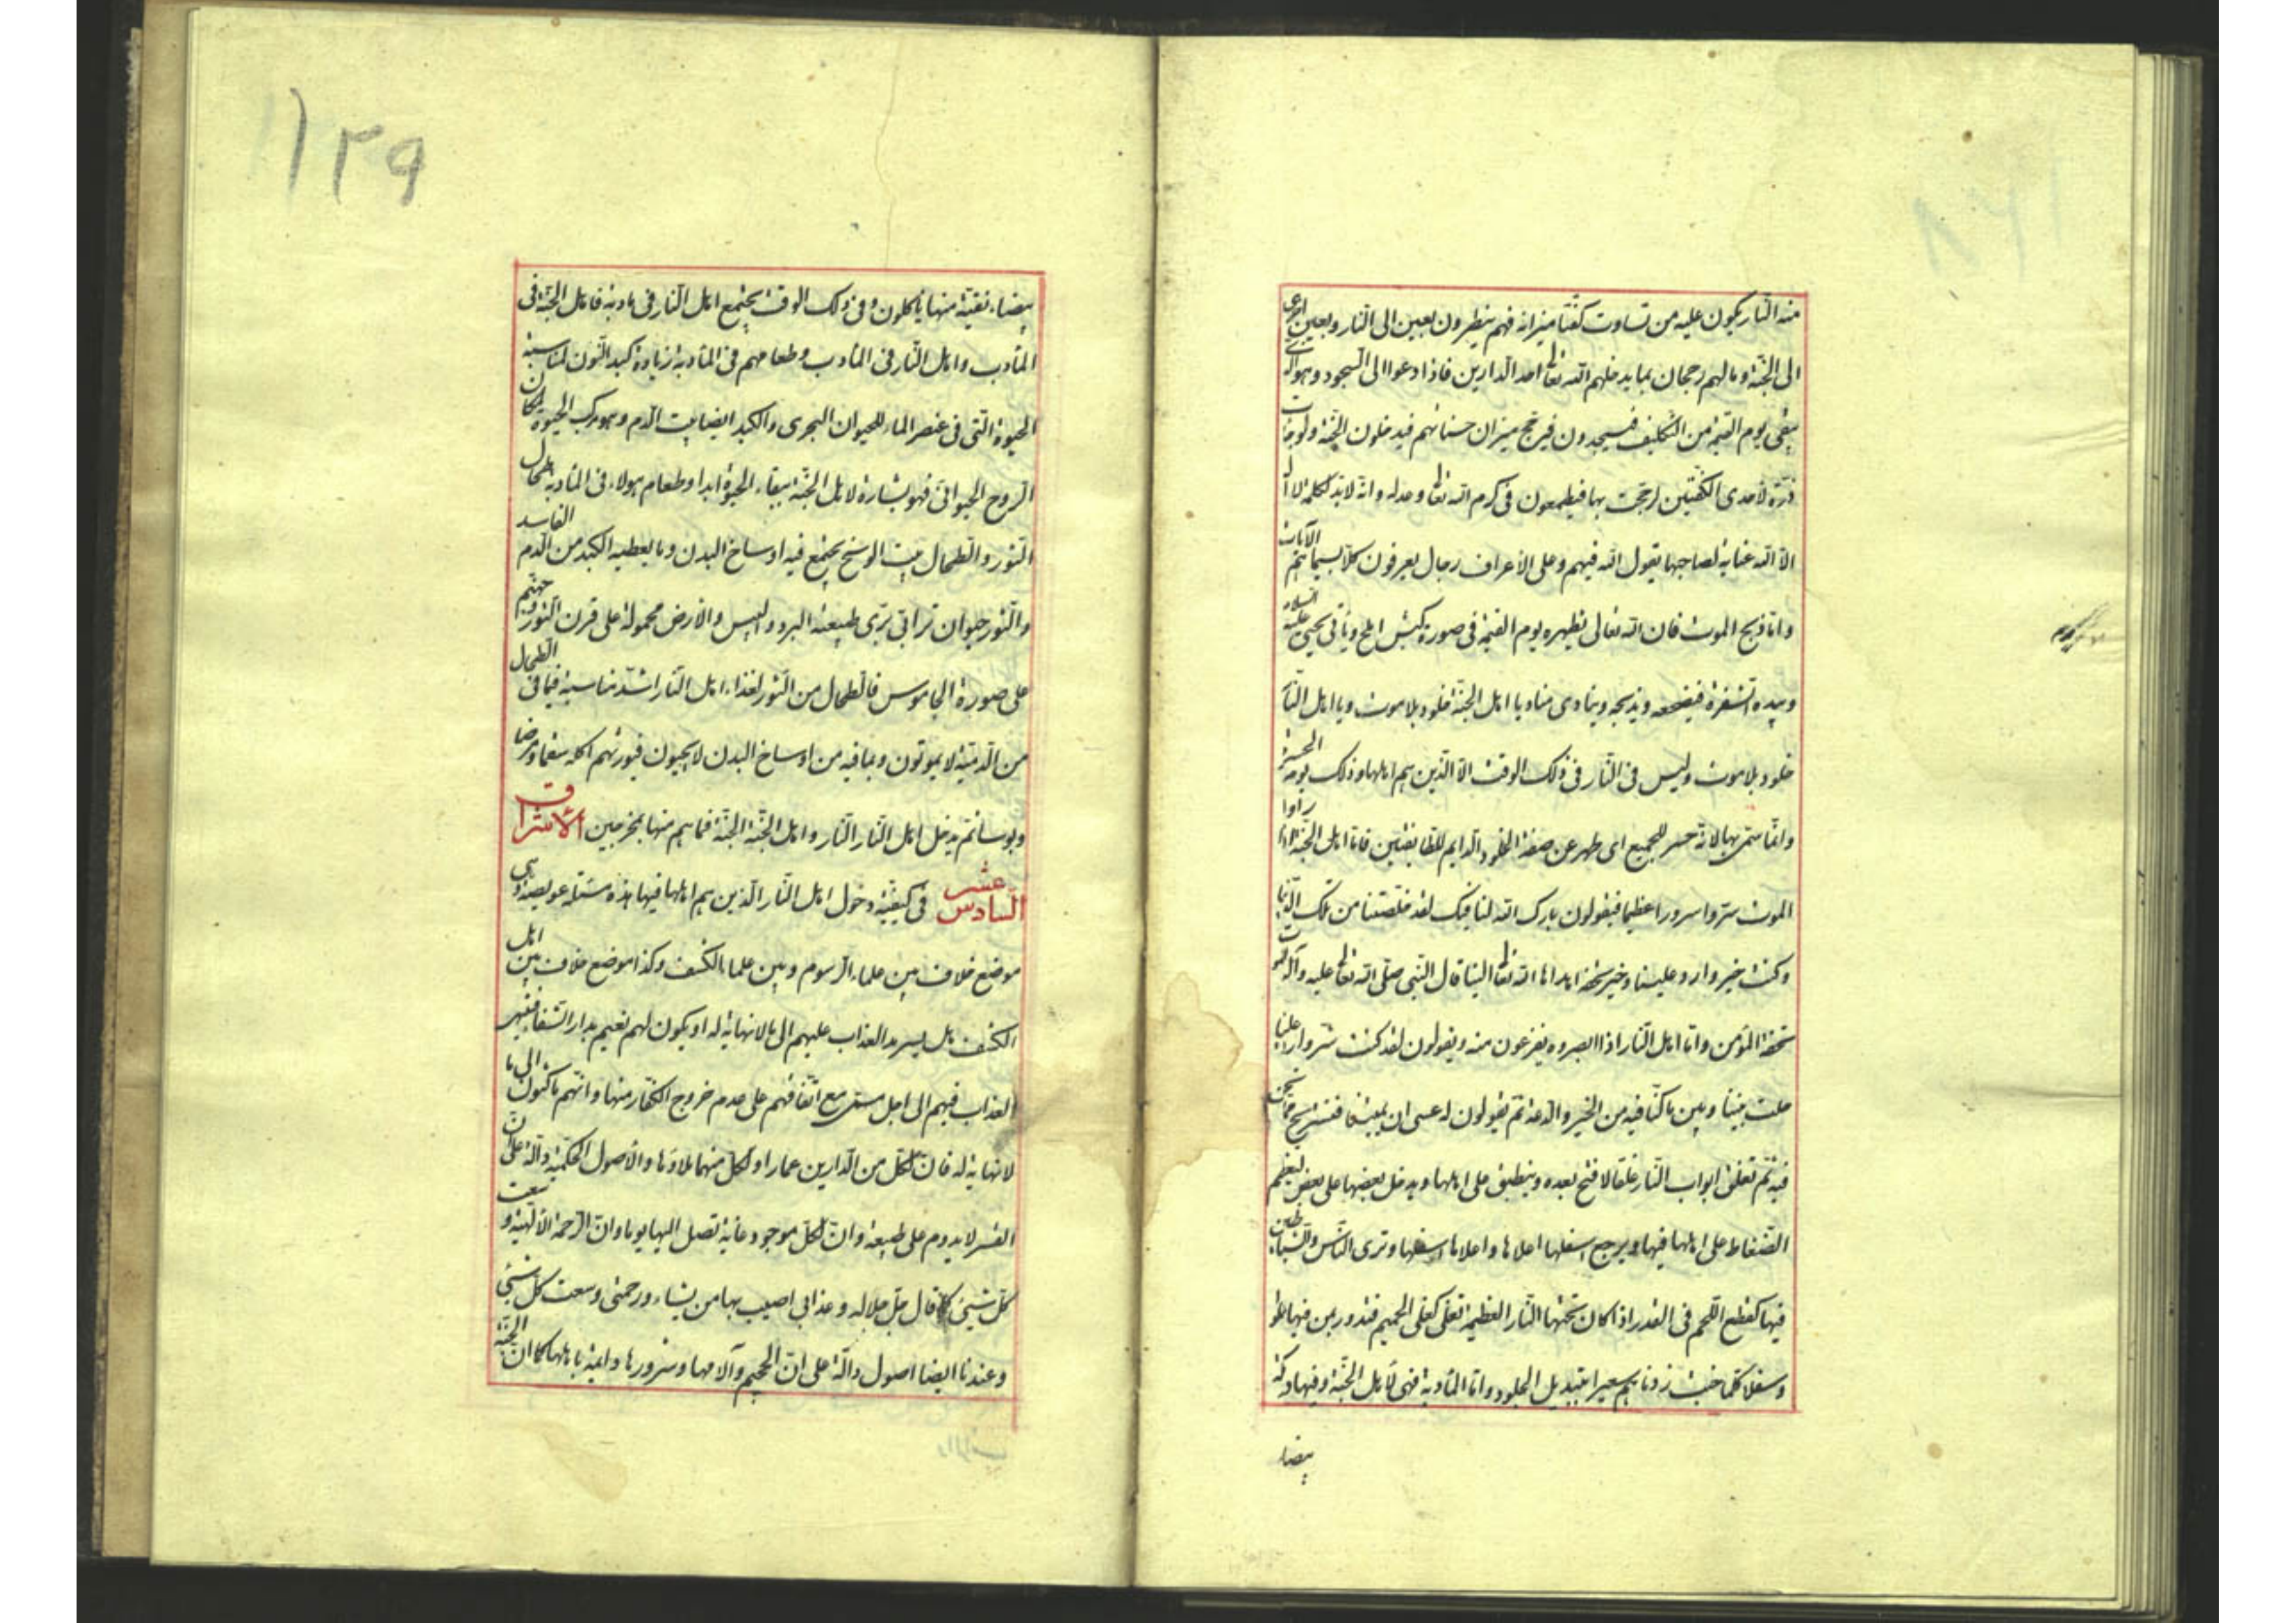 منه النار يكون عليه من تساوت كفتا ميزانه فهم ينظرون بعين الى النار وبعين اخرى
الى الجنة وما لهم رجحان بما يدخلهم الله تعا احد الدارين فاذا دعوا الى السجود وهو الذى
يبقى يوم القيمة من التكليف فيسجدون فيرجح ميزان حسناتهم فيدخلون الجنة ولو جاءت
ذرة لاحدى الكفتين لرجحت بها فيطمعون فى كرم الله تعا وعدله وانه لابد لكلمة لا اله
الا الله عناية لصاحبها يقول الله فيهم وعلى الأعراف رجال يعرفون كلا بسيماهم الآيات
واما ذبح الموت فان الله تعالى يظهره يوم القيمة فى صورة كبش املح ويأتى يحيى عليه السلام
وبيده الشفرة فيضجعه ويذبحه وينادى مناد يا اهل الجنة خلود بلا موت ويا اهل النار
خلود بلا موت وليس فى النار فى ذلك الوقت الا الذين هم اهلها وذلك يوم الحسرة
وانما سمى بها لانه حسر للجميع اى ظهر عن صفة الخلود الدايم للطايفتين فاما اهل الجنة اذا راوا
الموت سروا سرورا عظيما فيقولون بارك الله لنا فيك لقد خلصتنا من تلك الدنيا
وكنت خير وارد علينا وخير تحفة اهداها الله تعا الينا قال النبى صلى الله تعا عليه وآله الموت
تحفة المؤمن واما اهل النار اذا ابصروه يفزعون منه ويقولون لقد كنت شر وارد علينا
حلت بيننا وبين ما كنا فيه من الخير والدعة ثم يقولون له عسى ان يميتنا فنستريح مما نحن
فيه ثم تغلق ابواب النار غلقا لا فتح بعده وينطبق على اهلها ويدخل بعضها على بعض ليعظم
الضغاط على اهلها فيها ويرجع اسفلها اعلاها واعلاها اسفلها وترى الناس والشياطين
فيها كقطع اللحم فى القدر اذا كان تحتها النار العظيمة تغلى كغلى الحميم فتدور بمن فيها علوا
وسفلا كلما خبت زدناهم سعيرا بتبديل الجلود واما المادبة فهى لأهل الجنة وفيها درمكة
بيضاء
١٢٩
بيضاء نقية منها يأكلون وفى ذلك الوقت يجتمع اهل النار فى مادبة فاهل الجنة فى
المآدب واهل النار فى المنادب وطعامهم فى المادبة زيادة كبد النون لمناسبة
الحيوة التى فى عنصر الماء للحيوان البحرى والكبد ايضا بيت الدم وهو مركب الحيوة لمكان
الروح الحيوانى فهو بشارة لاهل الجنة ببقاء الحيوة ابدا وطعام هولاء فى المنادبة طحال
الثور والطحال بيت الوسخ يجتمع فيه اوساخ البدن وما يعطيه الكبد من الدم الفاسد
والثور حيوان ترابى ترى طبيعته البرد واليبس والأرض محمولة على قرن الثور وجهنم
على صورة الجاموس فالطحال من الثور لغذاء اهل النار اشد مناسبة فبما فى الطحال
من الدمية لا يموتون وبما فيه من اوساخ البدن لا يحيون فيورثهم اكله سقما ومرضا
وبوسا ثم يدخل اهل النار النار واهل الجنة الجنة فما هم منها بمخرجين الأشراق
السادس عشر فى كيفية دخول اهل النار الذين هم اهلها فيها هذه مسئلة عويصة وهى
موضع خلاف بين علماء الرسوم وبين علماء الكشف وكذا موضع خلاف بين اهل
الكشف هل يسرمد العذاب عليهم الى ما لا نهاية له او يكون لهم نعيم بدار الشقا فينتهى
العذاب فيهم الى اجل مسمى مع اتفاقهم على عدم خروج الكفار منها وانهم ماكثون الى ما
لا نهاية له فان لكل من الدارين عمارا ولكل منهما ملاؤها والأصول الحكمية دالة على ان
القسر لا يدوم على طبيعة وان لكل موجود غاية تصل اليها يوما وان الرحمة الألهية وسعت
كل شيئ كما قال جل جلاله وعذابى اصيب بها من يشاء ورحمتى وسعت كل شيئ
وعندنا ايضا اصول دالة على ان الجحيم وآلامها وشرورها دايمة باهلها كما ان الجنة